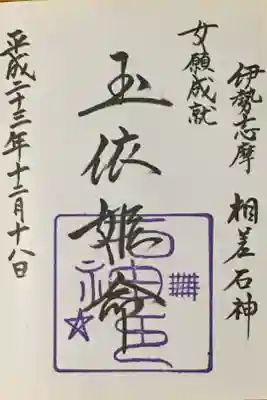 伊勢志摩 相差石神
女願成就
玉依姫命
平成二十三年十二月十八日